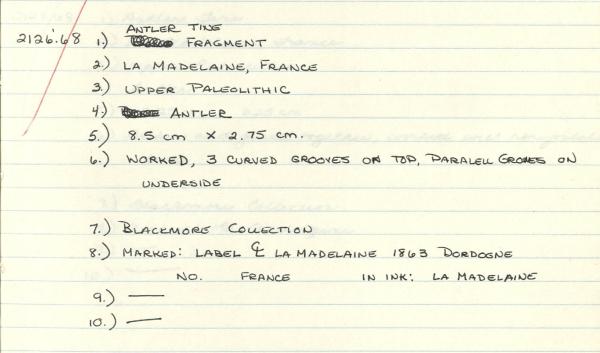 ANTLER TINE
2126.68 1.) FRAGMENT
2.) LA MADELAINE, FRANCE
3.) UPPER PALEOLITHIC
4.) ANTLER
5.) 8.5 cm x 2.75 cm.
6.) WORKED, 3 CURVED GROOVES ON TOP, PARALELL GROVES ON
UNDERSIDE
7.) BLACKMORE COLLECTION
8.) MARKED: LABEL LA MADELAINE 1863 DORDOGNE
NO. FRANCE IN INK: LA MADELAINE
9.) —
10.) —